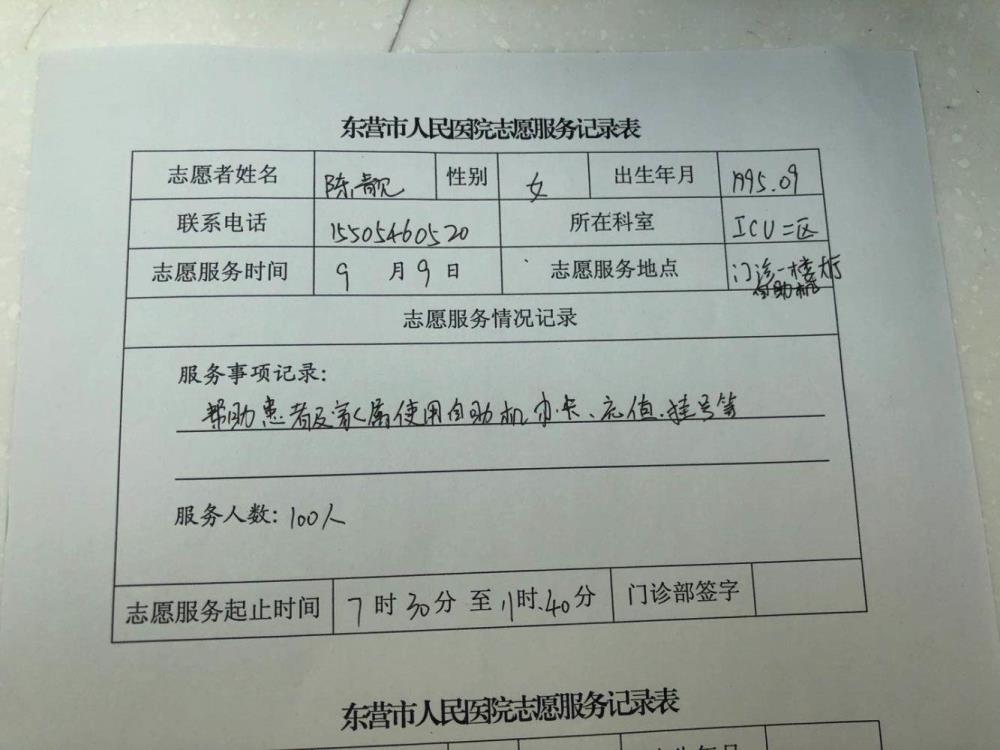 东营市人民医院志愿服务记录表
志愿者姓名 陈靓 性别 女 出生年月 1995.09
联系电话 15505460520 所在科室 ICU二区
志愿服务时间 9月9日 志愿服务地点 门诊一楼大厅
自助机
志愿服务情况记录
服务事项记录:
帮助患者及家属使用自助机办卡、充值、挂号等
服务人数:100人
志愿服务起止时间 7时30分至11时40分 门诊部签字
东营市人民医院志愿服务记录表